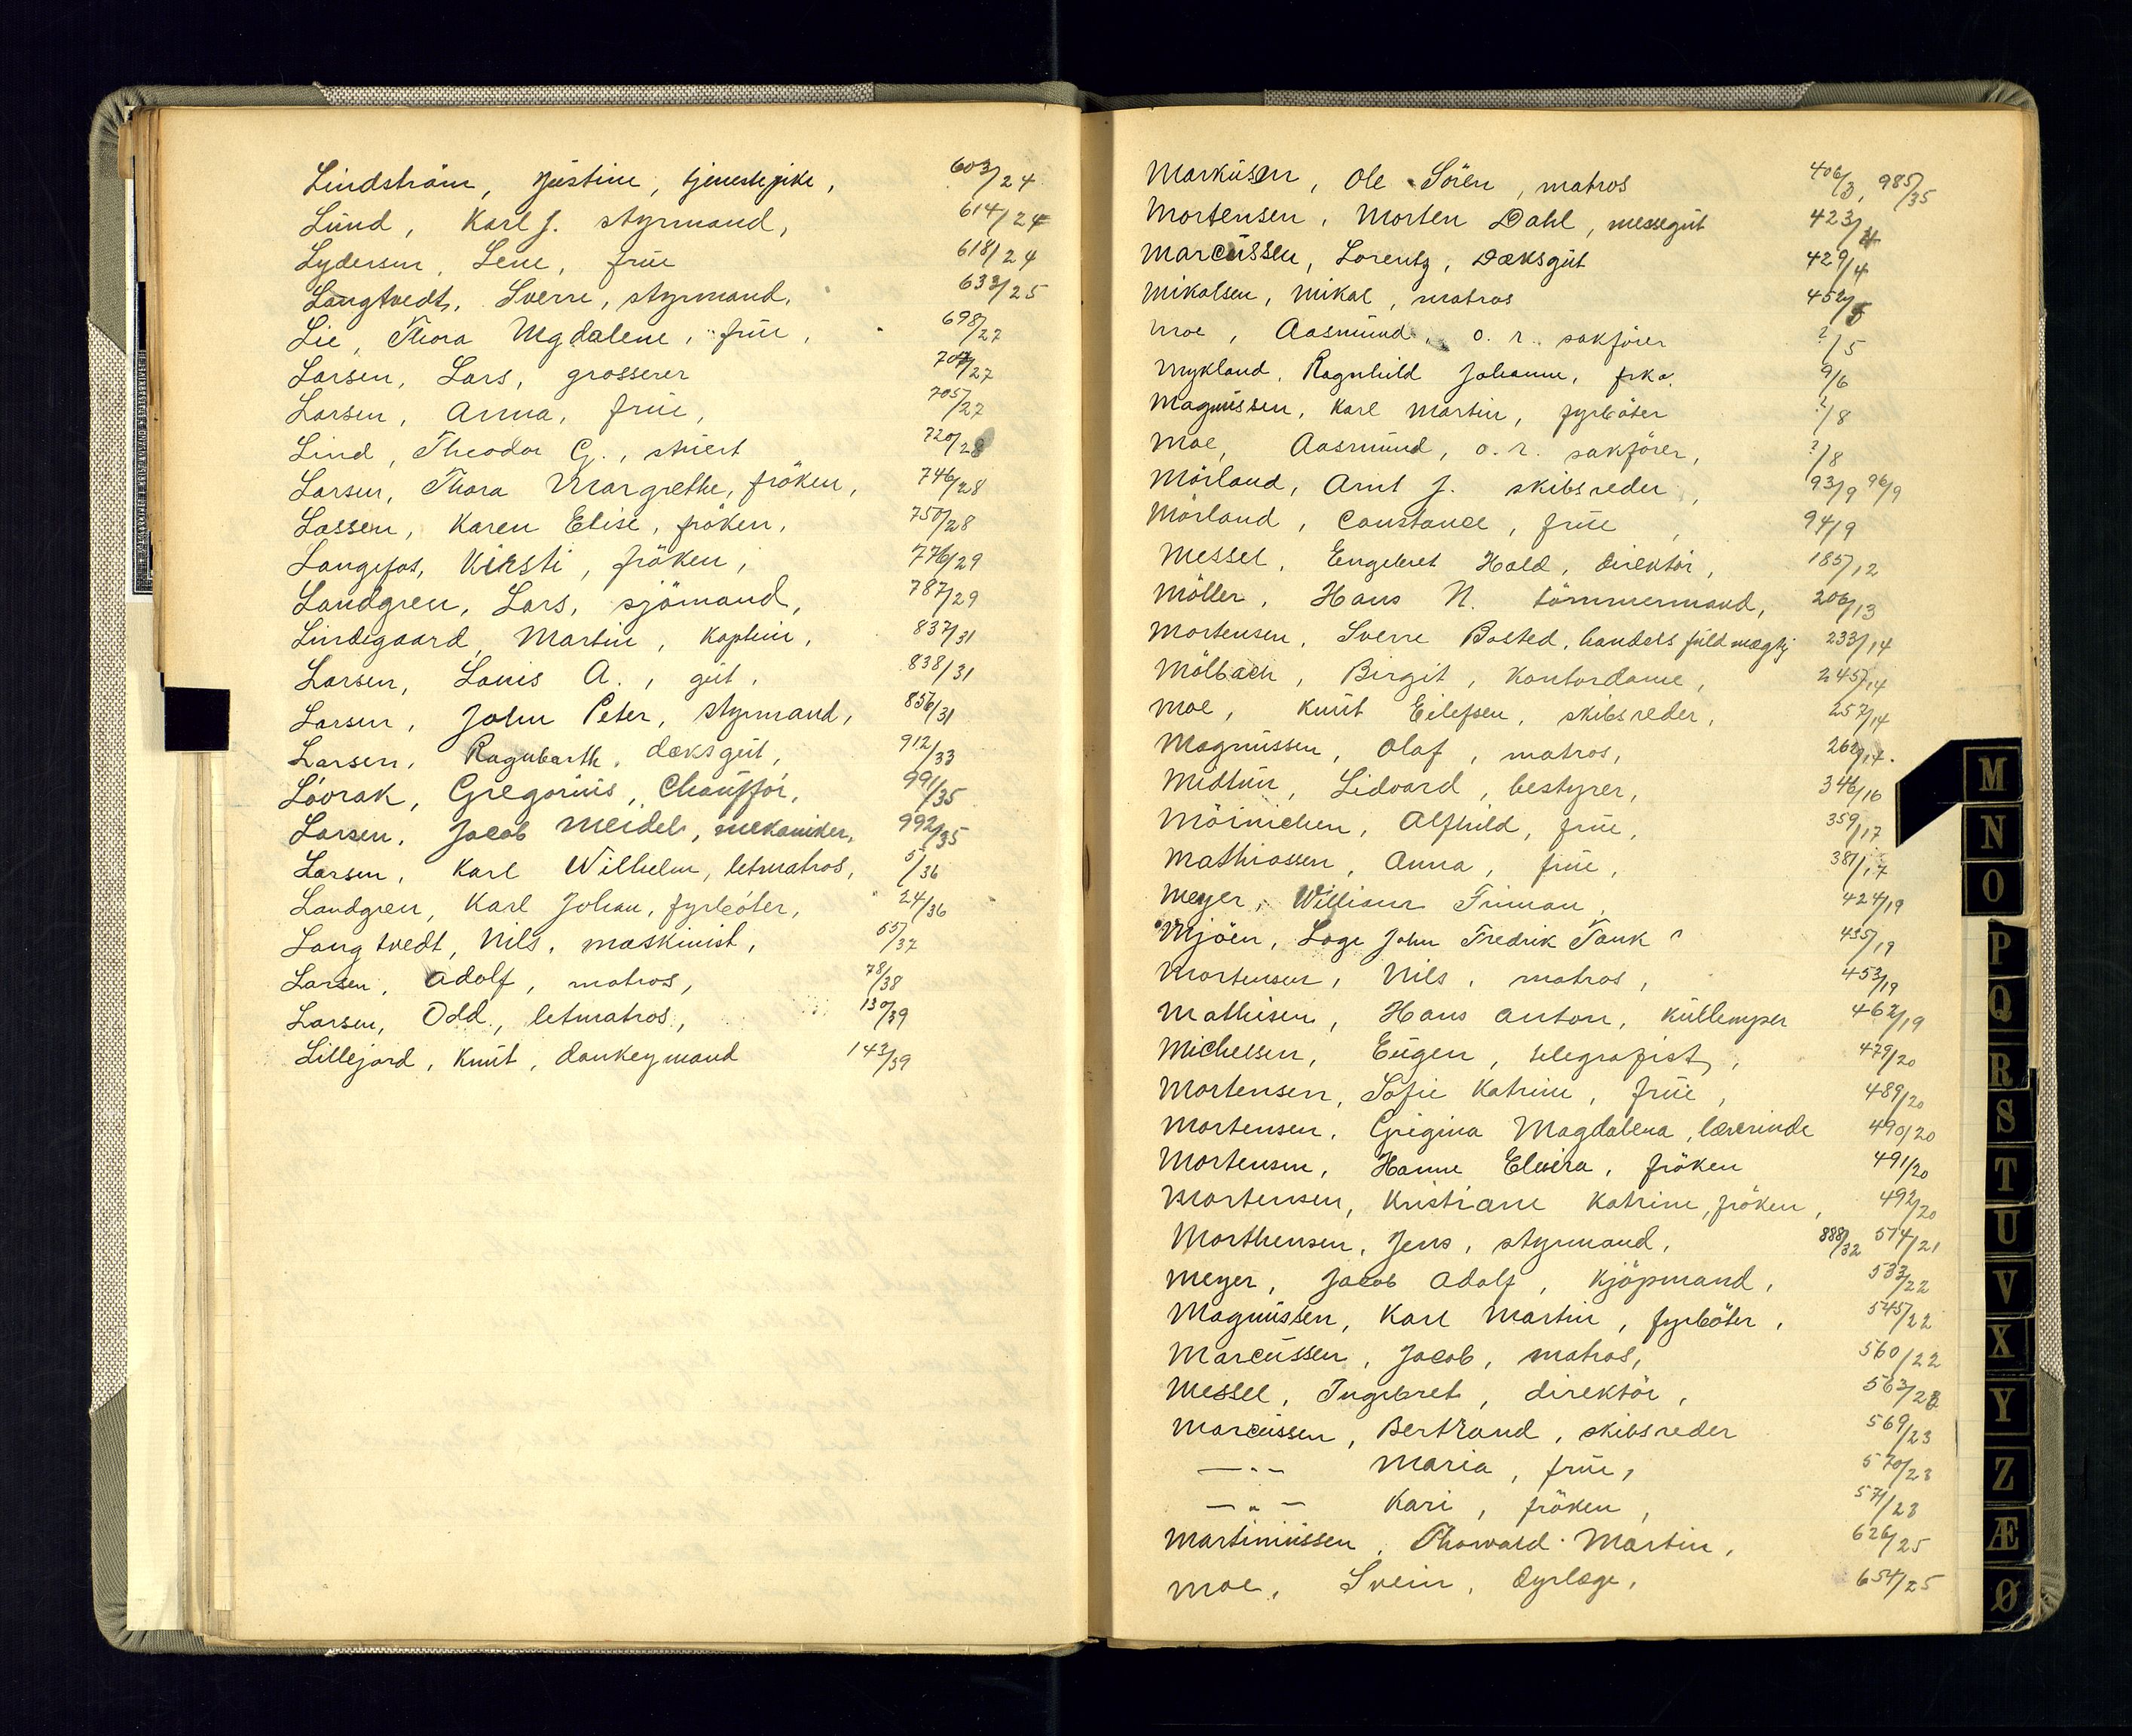 Lindström, Justine, tjenestepike, 603/24
Lund, Karl J. styrmand, 614/24
Lydersen, Lene, frue 618/24
Langtvedt, Sverre, styrmand, 633/25
Lie, Thora Magdalene, frue, 698/27
Larsen, Lars, grosserer 704/27
Larsen, Anna, frue, 705/27
Lind, Theodor G., stuert 720/28
Larsen, Thora Margrethe, fröken, 746/28
Lassen, Karen Elise, fröken, 750/28
Langefos, Kirsti, fröken, 776/29
Landgren, Lars, sjömand, 787/29
Lindegaard, Martin, kaptein, 837/31
Larsen, Louis A., gut, 838/31
Larsen, John Peter, styrmand, 856/31
Larsen, Ragnbarth, daeksgut, 912/33
Lóorak, Gregorius, Chaufför, 991/35
Larsen, Jacob Meidel, mekaniker, 992/35
Larsen, Karl Wilhelm, letmatros, 5/36
Landgren, Karl Johan, fyrböter, 24/36
Langtvedt, Nils, maskinist, 55/37
Larsen, Adolf, matros, 78/38
Larsen, Odd, letmatros, 130/39
Lillejord, Knut, donkeymand 143/39
Markusen, Ole Sören, matros 406/3, 985/35
Mortensen, Morten Dahl, messegut 423/4
Marcussen, Lorentz, Daeksgut 429/4
Mikalsen, Mikal, matros 452/5
Moe, Aasmund, o. r. sakförer ?/5
Mykland, Ragnhild Johanne, frk. 9/6
Magnussen, Karl Martin, fyrböter ?/8
Moe, Aasmund, o. r. sakförer, ?/8
Mörland, Arnt J. skibsreder, 93/9 96/9
Mörland, Constance, frue, 94/9
Messel, Engebret Hald, direktör, 185/12
Möller, Hans N. tömmermand, 206/13
Mortensen, Sverre Bosted, handelsfuldmægtig 233/14
Mölbach, Birgit, Kontordame, 245/14
Moe, Knut Eilefsen, skibsreder, 257/14
Magnussen, Olaf, matros, 262/14.
Midtun, Lidvard, bestyrer, 346/16
Möinichen, Alfhild, frue, 359/17
Mathiassen, Anna, frue, 381/17
Meyer, William Friman, 424/19
Mjöen, Lage John Fredrik Tank ? 435/19
Mortensen, Nils, matros, 453/19
Mathisen, Hans Anton, kullemper 462/19
Michelsen, Eugen, telegrafist, 479/20
Mortensen, Sofie Katrine, frue, 489/20
Mortensen, Grigina Magdalena, lærerinde 490/20
Mortensen, Hanne Elvira, fröken 491/20
Mortensen, Kristiane Katrine, fröken, 492/20
Morthensen, Jens, styrmand, 888/32 514/21
Meyer, Jacob Adolf, Kjöpmand, 533/22
Magnussen, Karl Martin, fyrböter, 545/22
Marcussen, Jacob, matros, 560/22
Messel, Ingebret, direktör, 563/23
Marcussen, Bertrand, skibsreder 569/23
—"— Maria, frue, 570/23
—"— Kari, fröken, 571/23
Martiniussen, Thorvald Martin, 626/25
Moe, Svein, dyrlæge, 654/25
M
N
O
P
Q
R
S
T
U
V
X
Y
Z
Æ
Ø